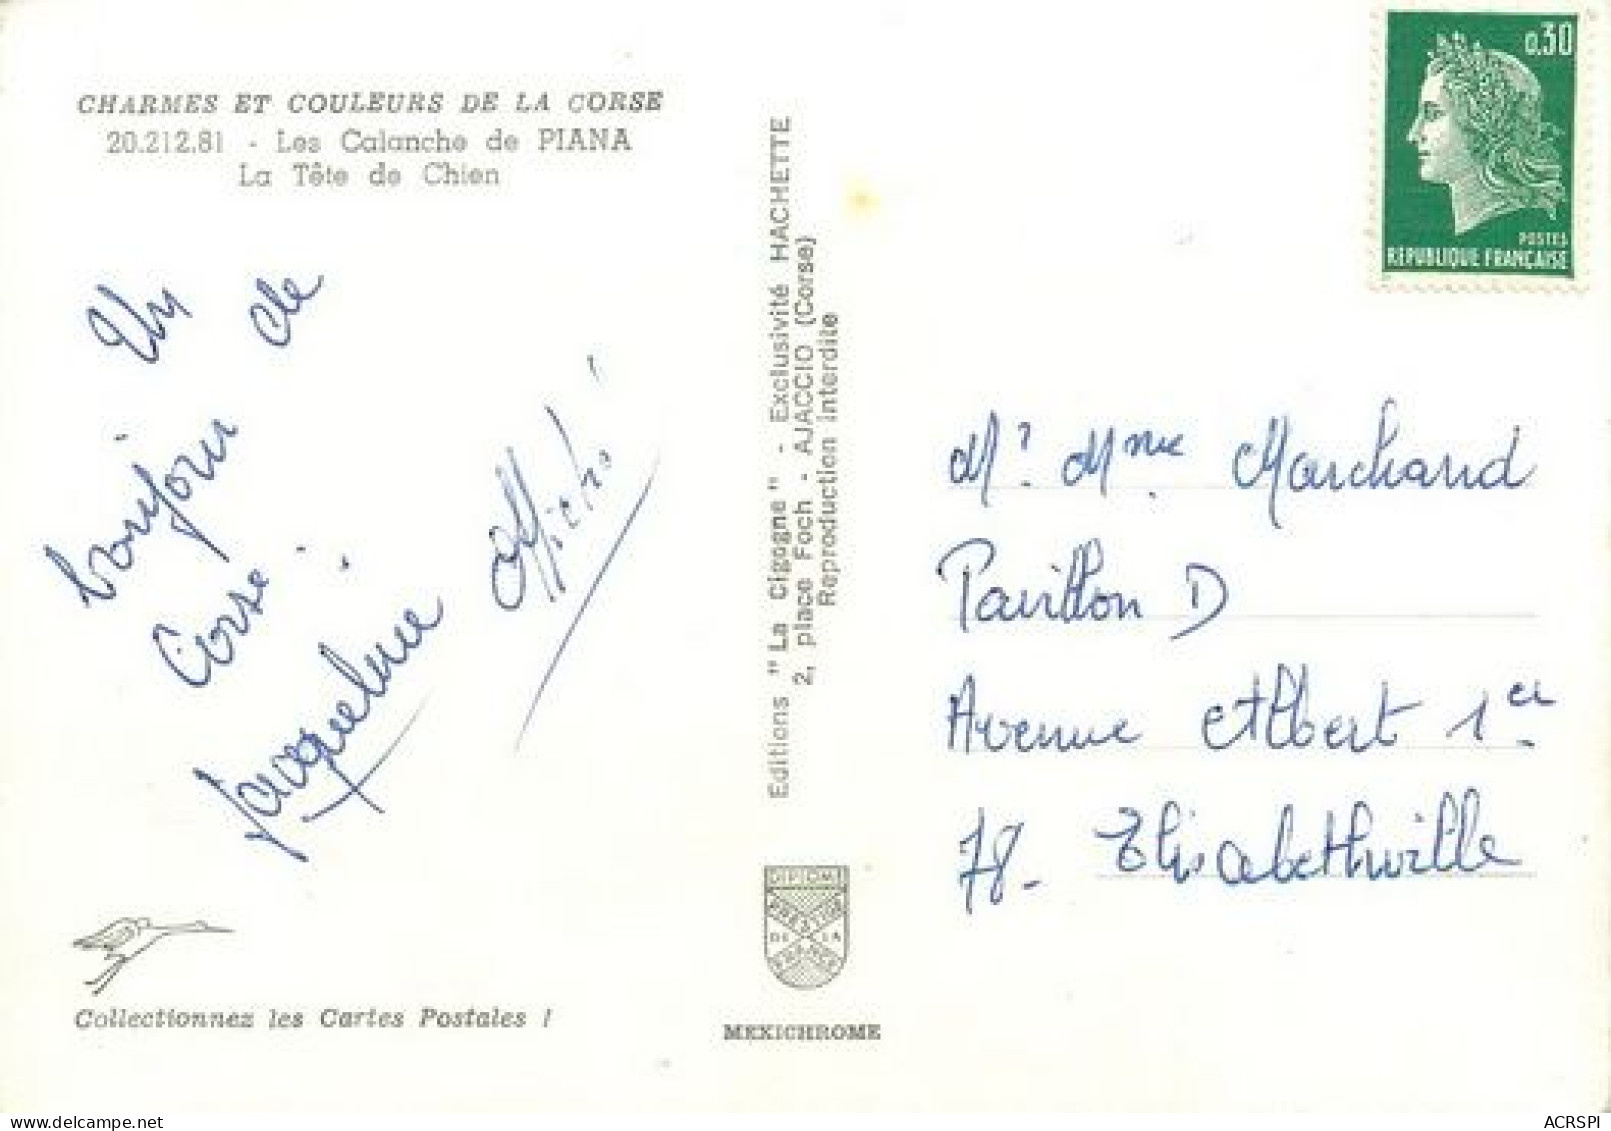 CHARMES ET COULEURS DE LA CORSE
20.212.81 - Les Calanche de PIANA
La Tête de Chien
Un
bonjour de
Corse.
Jacqueline
Collectionnez les Cartes Postales !
Editions "La Cigogne" - Exclusivité HACHETTE
2, place Foch - AJACCIO (Corse)
Reproduction interdite
DIPLOME
PRESTIGE
DE LA
FRANCE
MEXICHROME
0,30
POSTES
RÉPUBLIQUE FRANÇAISE
Mr Mme Marchand
Pavillon D
Avenue Albert 1er
78- Elisabethville
ACRSPI